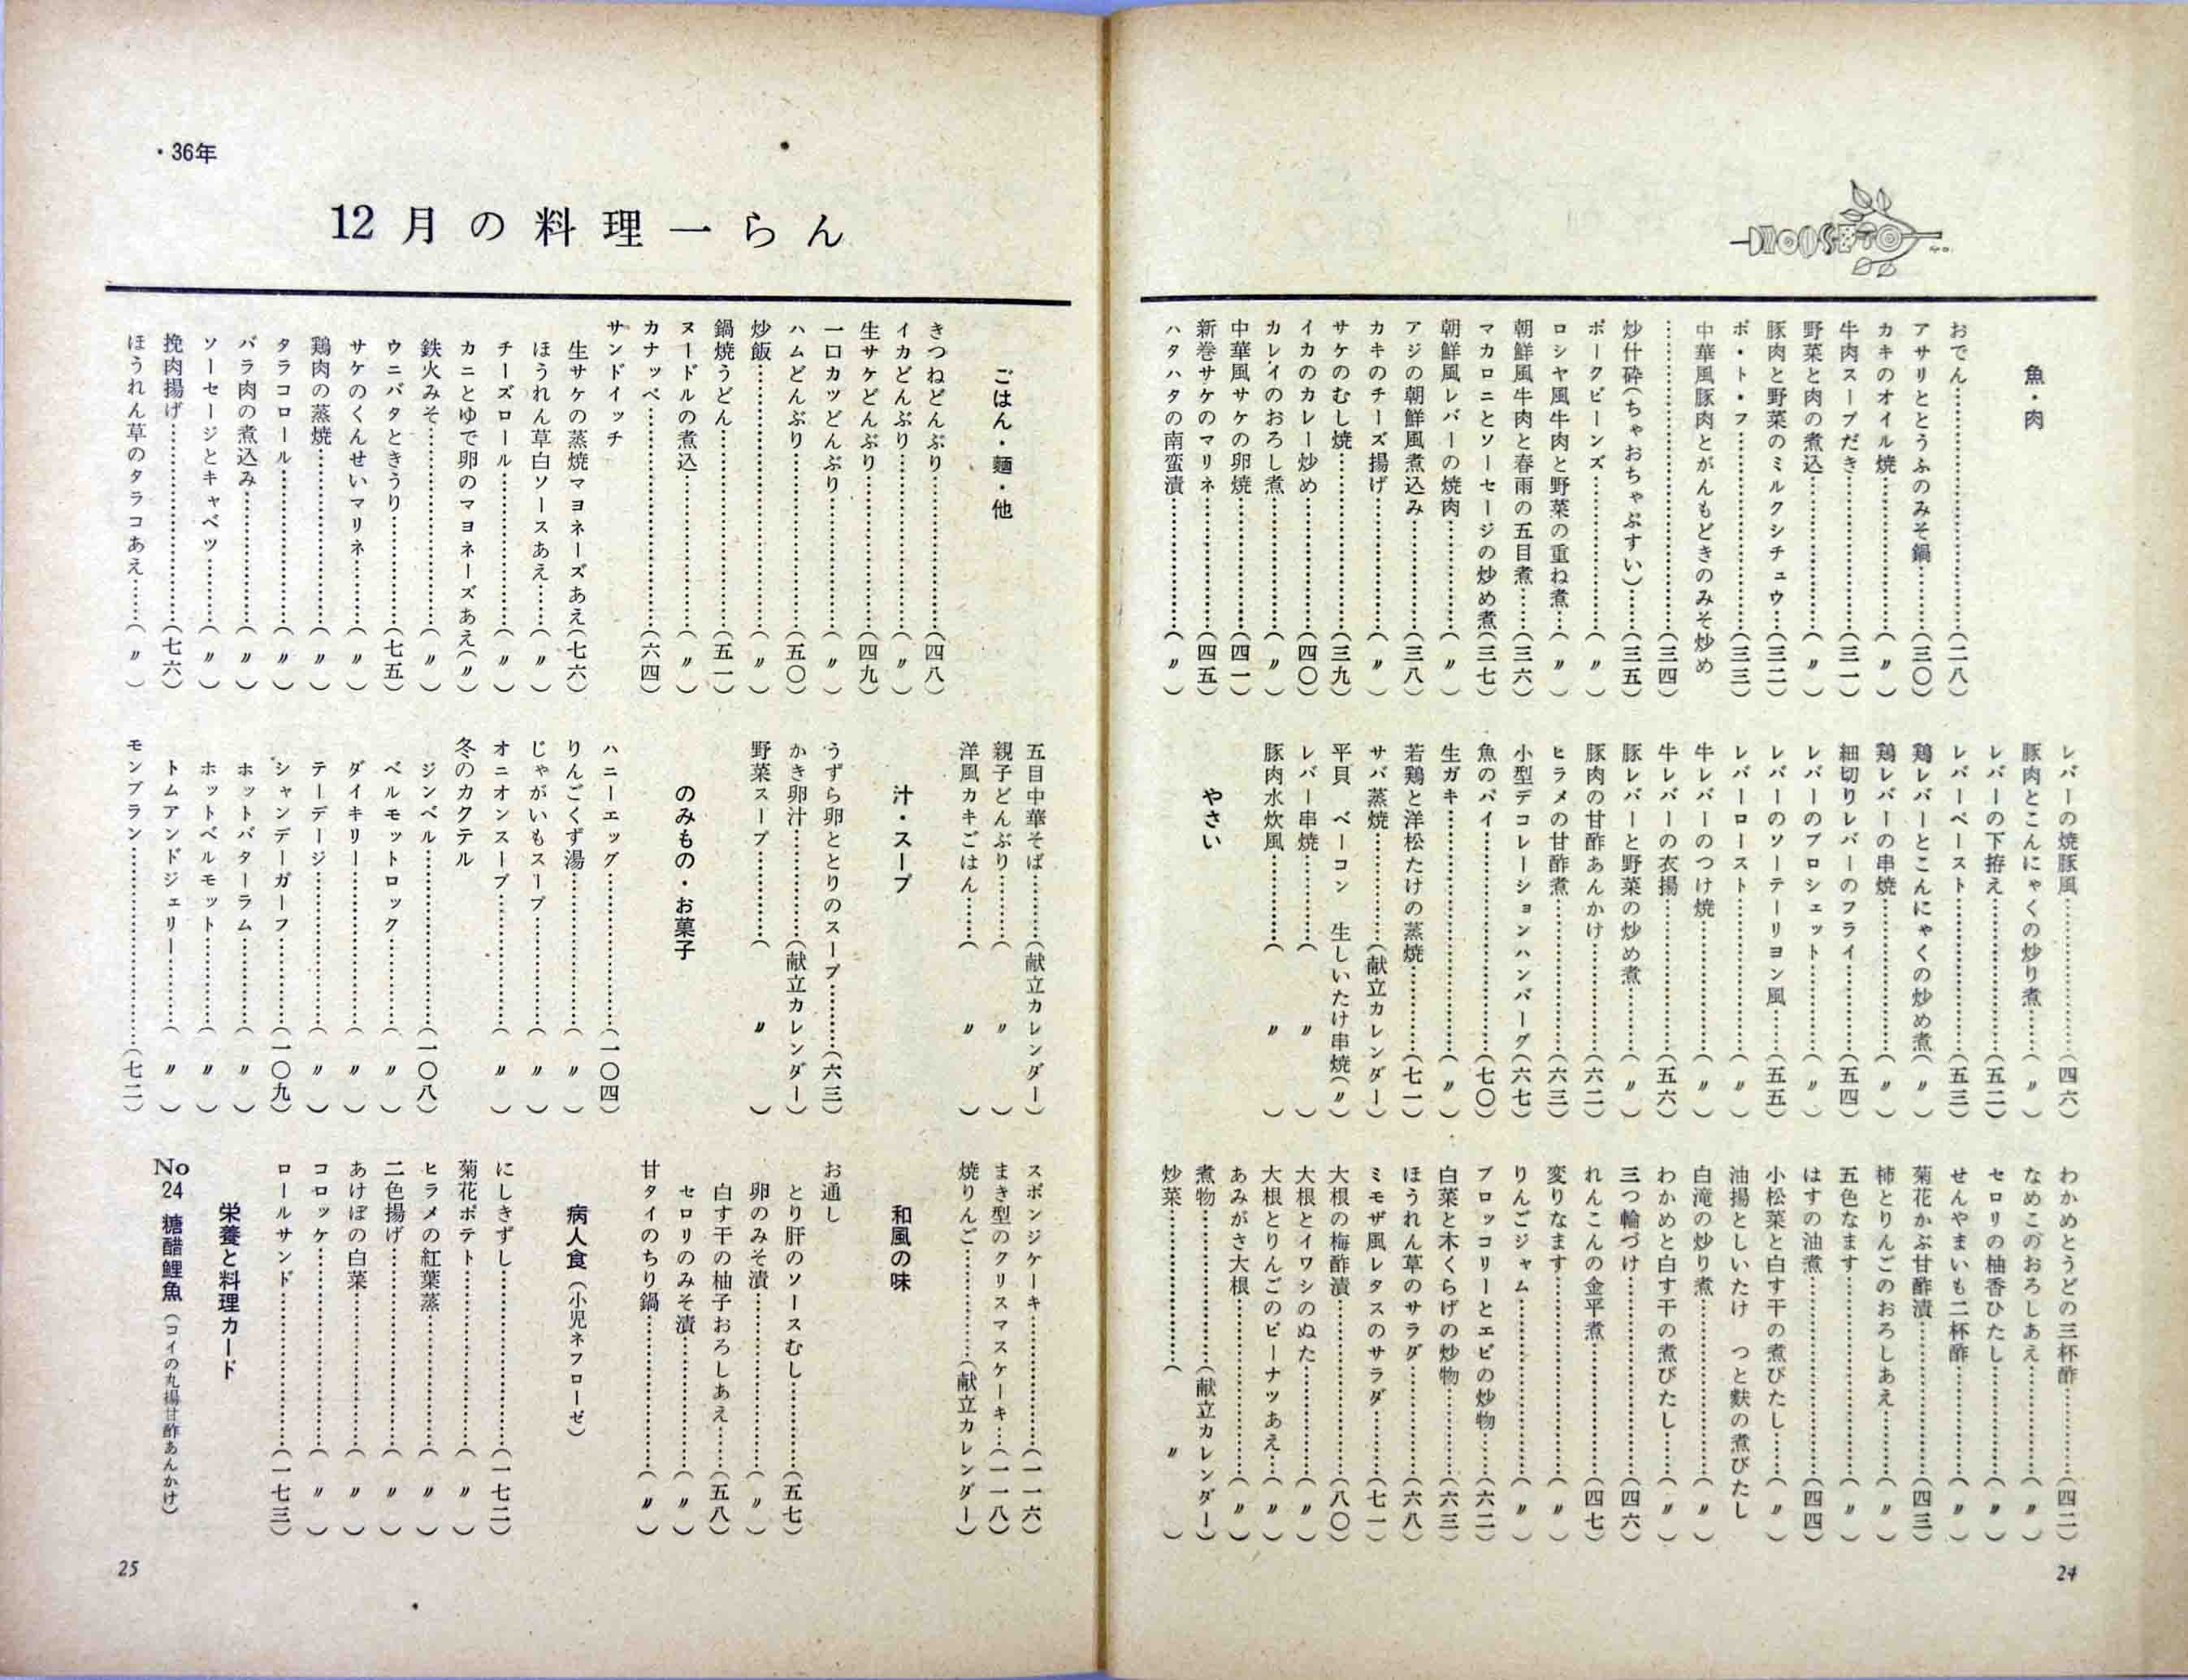 ・36年
12月の料理一らん
魚・肉
おでん…………(二八)
アサリととうふのみそ鍋…………(三〇)
カキのオイル焼…………(〃)
牛肉スープだき…………(三一)
野菜と肉の煮込…………(〃)
豚肉と野菜のミルクシチュウ……(三二)
ポ・ト・フ…………(三三)
中華風豚肉とがんもどきのみそ炒め
…………(三四)
炒什砕(ちゃおちゃぷすい)……(三五)
ポークビーンズ…………(〃)
ロシヤ風牛肉と野菜の重ね煮…(〃)
朝鮮風牛肉と春雨の五目煮……(三六)
マカロニとソーセージの炒め煮(三七)
朝鮮風レバーの焼肉…………(〃)
アジの朝鮮風煮込み…………(三八)
カキのチーズ揚げ…………(〃)
サケのむし焼…………(三九)
イカのカレー炒め…………(四〇)
カレイのおろし煮…………(〃)
中華風サケの卵焼…………(四一)
新巻サケのマリネ…………(四五)
ハタハタの南蛮漬…………(〃)
レバーの焼豚風…………(四六)
豚肉とこんにゃくの炒り煮……(〃)
レバーの下拵え…………(五二)
レバーペースト…………(五三)
鶏レバーとこんにゃくの炒め煮(〃)
鶏レバーの串焼…………(〃)
細切りレバーのフライ…………(五四)
レバーのブロシェット…………(〃)
レバーのソーテーリヨン風……(五五)
レバーロースト…………(〃)
牛レバーのつけ焼…………(〃)
牛レバーの衣揚…………(五六)
豚レバーと野菜の炒め煮……(〃)
豚肉の甘酢あんかけ…………(六二)
ヒラメの甘酢煮…………(六三)
小型デコレーションハンバーグ(六七)
魚のパイ…………(七〇)
生ガキ…………(〃)
若鶏と洋松たけの蒸焼…………(七一)
サバ蒸焼…………(献立カレンダー)
平貝　ベーコン　生しいたけ串焼(〃)
レバー串焼…………(〃)
豚肉水炊風…………(〃)
やさい
わかめとうどの三杯酢…………(四二)
なめこのおろしあえ…………(〃)
セロリの柚香ひたし…………(〃)
せんやまいも二杯酢…………(〃)
菊花かぶ甘酢漬…………(四三)
柿とりんごのおろしあえ…………(〃)
五色なます…………(〃)
はすの油煮…………(四四)
小松菜と白す干の煮びたし……(〃)
油揚としいたけ　つと麩の煮びたし
白滝の炒り煮…………(〃)
わかめと白す干の煮びたし……(〃)
三つ輪づけ…………(四六)
れんこんの金平煮…………(四七)
変りなます…………(〃)
りんごジャム…………(〃)
ブロッコリーとエビの炒物……(六二)
白菜と木くらげの炒物…………(六三)
ほうれん草のサラダ…………(六八)
ミモザ風レタスのサラダ……(七一)
大根の梅酢漬…………(八〇)
大根とイワシのぬた…………(〃)
大根とりんごのピーナツあえ…(〃)
あみがさ大根…………(〃)
煮物…………(献立カレンダー)
炒菜…………(〃)
24
ごはん・麺・他
きつねどんぶり…………(四八)
イカどんぶり…………(〃)
生サケどんぶり…………(四九)
一口カツどんぶり…………(〃)
ハムどんぶり…………(五〇)
炒飯…………(〃)
鍋焼うどん…………(五一)
ヌードルの煮込…………(〃)
カナッペ…………(六四)
サンドイッチ
生サケの蒸焼マヨネーズあえ(七六)
ほうれん草白ソースあえ……(〃)
チーズロール…………(〃)
カニとゆで卵のマヨネーズあえ(〃)
鉄火みそ…………(〃)
ウニバタときうり…………(七五)
サケのくんせいマリネ…………(〃)
鶏肉の蒸焼…………(〃)
タラコロール…………(〃)
バラ肉の煮込み…………(〃)
ソーセージとキャベツ…………(〃)
挽肉揚げ…………(七六)
ほうれん草のタラコあえ……(〃)
五目中華そば…………(献立カレンダー)
親子どんぶり…………(〃)
洋風カキごはん……(〃)
汁・スープ
うずら卵ととりのスープ………(六三)
かき卵汁…………(献立カレンダー)
野菜スープ…………(〃)
のみもの・お菓子
ハニーエッグ…………(一〇四)
りんごくず湯…………(〃)
じゃがいもスープ…………(〃)
オニオンスープ…………(〃)
冬のカクテル
ジンベル…………(一〇八)
ベルモットロック…………(〃)
ダイキリー…………(〃)
テーデージ…………(〃)
シャンデーガーフ…………(一〇九)
ホットバターラム…………(〃)
ホットベルモット…………(〃)
トムアンドジェリー…………(〃)
モンブラン…………(七二)
スポンジケーキ…………(一一六)
まき型のクリスマスケーキ…(一一八)
焼りんご…………(献立カレンダー)
和風の味
お通し
とり肝のソースむし…………(五七)
卵のみそ漬…………(〃)
白す干の柚子おろしあえ……(五八)
セロリのみそ漬…………(〃)
甘タイのちり鍋…………(〃)
病人食(小児ネフローゼ)
にしきずし…………(一七二)
菊花ポテト…………(〃)
ヒラメの紅葉蒸…………(〃)
二色揚げ…………(〃)
あけぼの白菜…………(〃)
コロッケ…………(〃)
ロールサンド…………(一七三)
栄養と料理カード
No24　糖醋鯉魚(コイの丸揚甘酢あんかけ)
25